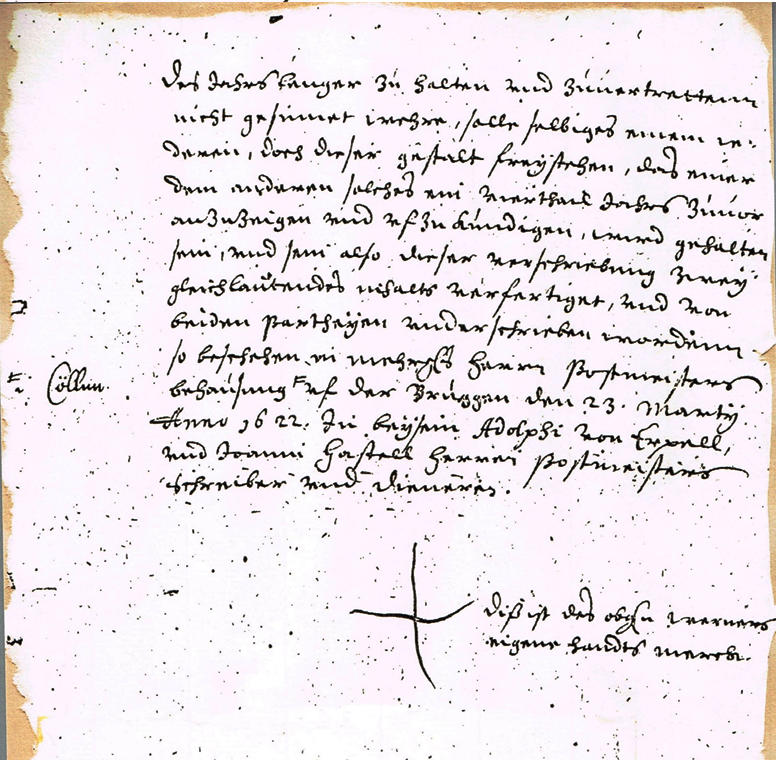 des Jahrs länger zu halten und zuuertrettenn
nicht gesinnet wehre, solle selbiges einem ie-
deren, doch dieser gestalt freystehen, das einer
dem anderen solches ein vierthail Jahrs zuuor
anzuzeigen und ufzukündigen, wird gehalten
sein, und sein also dieser verschriebung zwey
gleichlautendes inhalts verfertiget, und von
beiden Partheyen underschrieben wordenn.
so beschehen in Herrn Postmeisters
Cöllen.
behausung uf der Bruggen den 23. Martij
Anno 1622. In beysein Adolphi von Erpell,
und Joanni Hastell Herren Postmeisters
Schreiber und dieneren.
Diß ist des obgn werners
eigene handts merck.